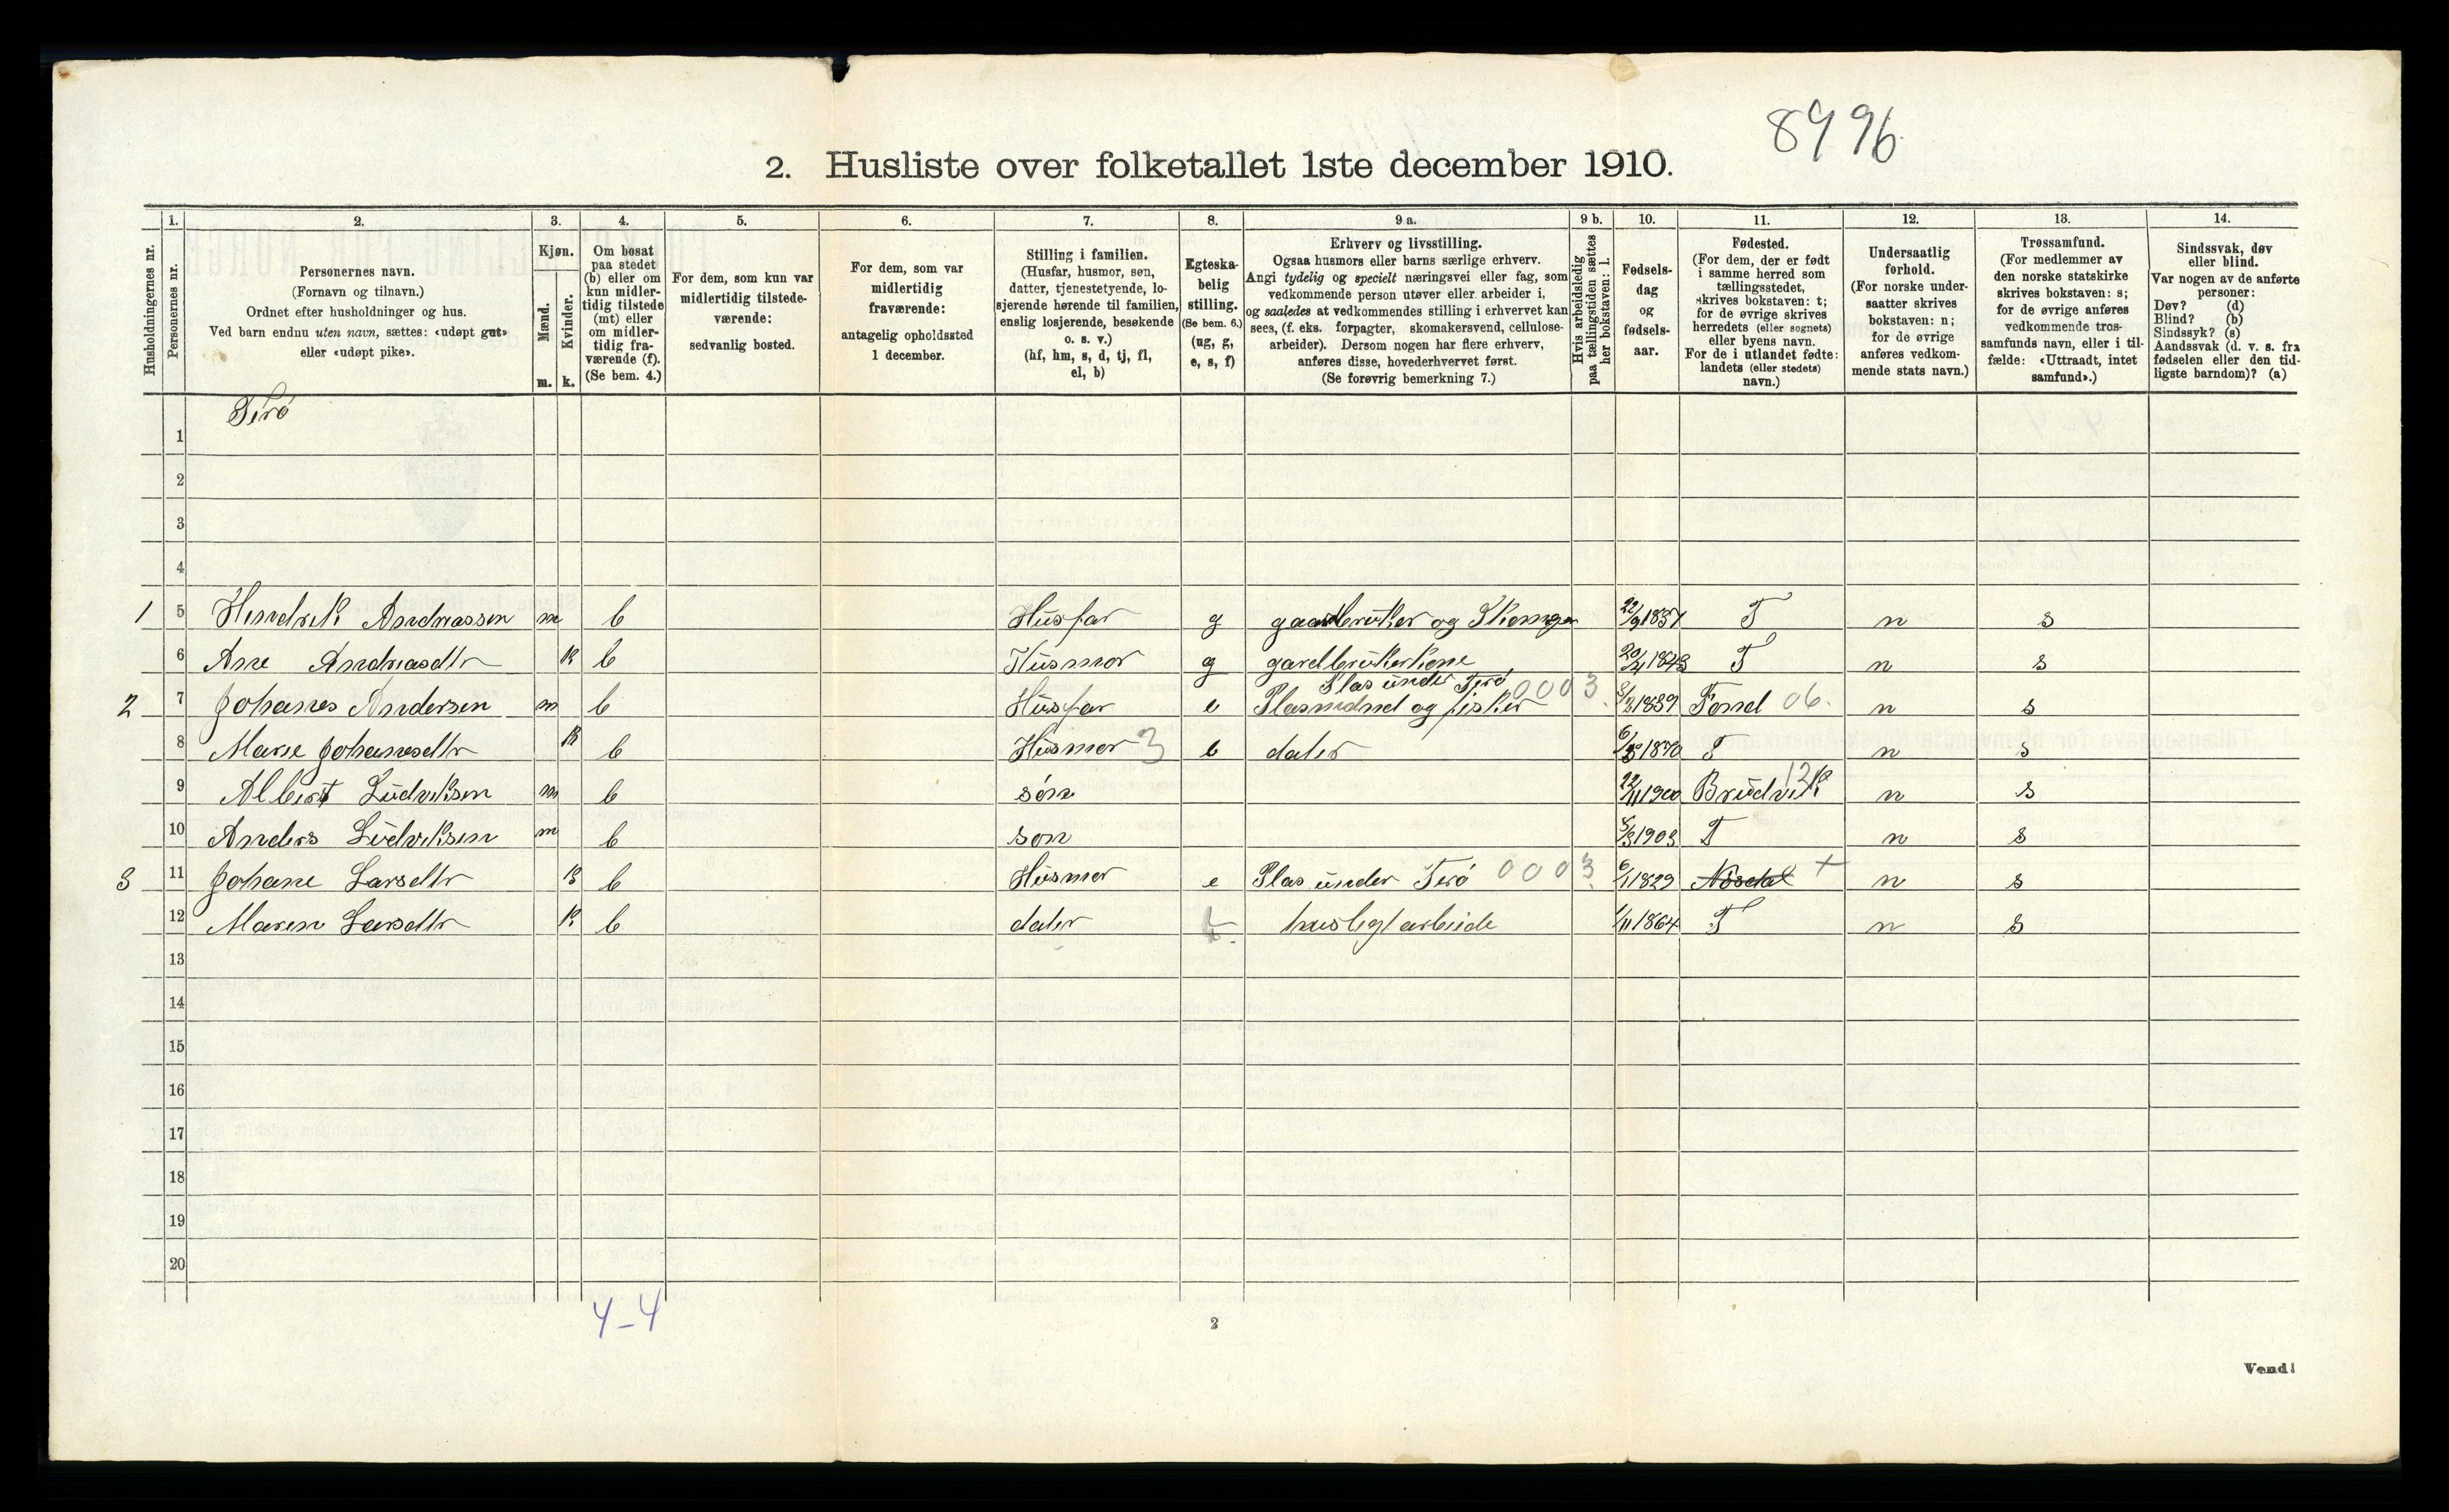 8996
2. Husliste over folketallet 1ste december 1910.
1. 2. 3. 4. 5. 6. 7. 8. 9 a. 9 b. 10. 11. 12. 13. 14.
Husholdningernes nr.
Personernes nr.
Personernes navn.
(Fornavn og tilnavn.)
Ordnet efter husholdninger og hus.
Ved barn endnu uten navn, sættes: «udøpt gut»
eller «udøpt pike».
Kjøn.
Mænd.
Kvinder.
m. k.
Om bosat
paa stedet
(b) eller om
kun midler-
tidig tilstede
(mt) eller
om midler-
tidig fra-
værende (f).
(Se bem. 4.)
For dem, som kun var
midlertidig tilstede-
værende:
sedvanlig bosted.
For dem, som var
midlertidig
fraværende:
antagelig opholdssted
1 december.
Stilling i familien.
(Husfar, husmor, søn,
datter, tjenestetyende, lo-
sjerende hørende til familien,
enslig losjerende, besøkende
o. s. v.)
(hf, hm, s, d, tj, fl,
el, b)
Egteska-
belig
stilling.
(Se bem. 6.)
(ug, g,
e, s, f)
Erhverv og livsstilling.
Ogsaa husmors eller barns særlige erhverv.
Angi tydelig og specielt næringsvei eller fag, som
vedkommende person utøver eller arbeider i,
og saaledes at vedkommendes stilling i erhvervet kan
sees, (f. eks. forpagter, skomakersvend, cellulose-
arbeider). Dersom nogen har flere erhverv,
anføres disse, hovederhvervet først.
(Se forøvrig bemerkning 7.)
Hvis arbeidsledig
paa tællingstiden sættes
her bokstaven: l.
Fødsels-
dag
og
fødsels-
aar.
Fødested.
(For dem, der er født
i samme herred som
tællingsstedet,
skrives bokstaven: t;
for de øvrige skrives
herredets (eller sognets)
eller byens navn.
For de i utlandet fødte:
landets (eller stedets)
navn.)
Undersaatlig
forhold.
(For norske under-
saatter skrives
bokstaven: n;
for de øvrige
anføres vedkom-
mende stats navn.)
Trossamfund.
(For medlemmer av
den norske statskirke
skrives bokstaven: s;
for de øvrige anføres
vedkommende tros-
samfunds navn, eller i til-
fælde: «Uttraadt, intet
samfund».)
Sindssvak, døv
eller blind.
Var nogen av de anførte
personer:
Døv? (d)
Blind? (b)
Sindssyk? (s)
Aandssvak (d. v. s. fra
fødselen eller den tid-
ligste barndom)? (a)
Terø
1
2
3
4
1 5 Hendrik Andreassen m b Husfar g gaardbruker og 22/9 T n s
6 Ane Andreasdtr k b Husmor g gardbrukerkone 20/4 T n s
Plas under Terø 0003
2 7 Johanes Andersen m b Husfar e Plasmand og fisker 1839 06. n s
8 Marie Johanesdtr k b Husmor 3 dater T n s
9 Albert Ludviksen m b søn 22/11 1900 Brudvik 12 n s
10 Anders Ludviksen m b søn 1903 T n s
3 11 Johane Larsdtr k b Husmor e Plas under Terø 0003 6/1 1829 + n s
12 Maren Larsdtr k b dater husligt arbeide 1/11 1864 T n s
13
14
15
16
17
18
19
20
4-4
2
Vend!